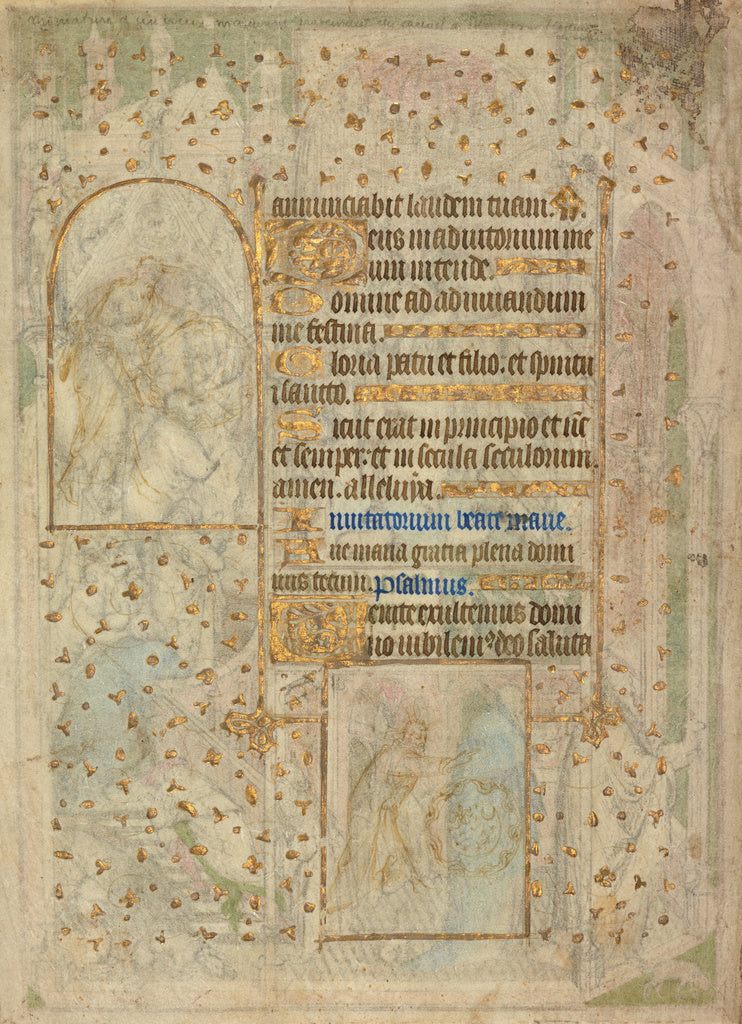 annunciabit laudem tuam.
Deus in adiutorium me
um intende.
Domine ad adiuuandum
me festina.
Gloria patri et filio. et spiritu
i sancto.
Sicut erat in principio et nūc
et semper: et in secula seculorum.
amen. alleluya.
Inuitatorium beate marie.
Aue maria gratia plena domi
nus tecum. psalmus.
Uenite exultemus domi
no iubilemꝰ deo saluta